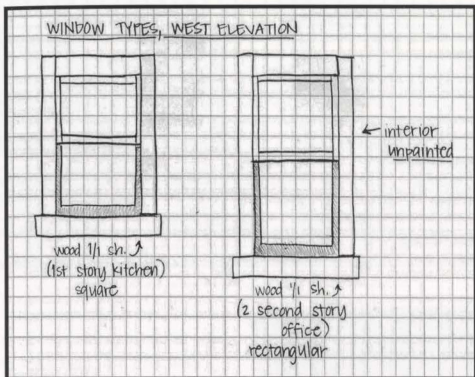 WINDOW TYPES, WEST ELEVATION
← interior
unpainted
wood 1/1 sh. ⤴
(1st story kitchen)
square
wood 1/1 sh. ⤴
(2 second story
office)
rectangular